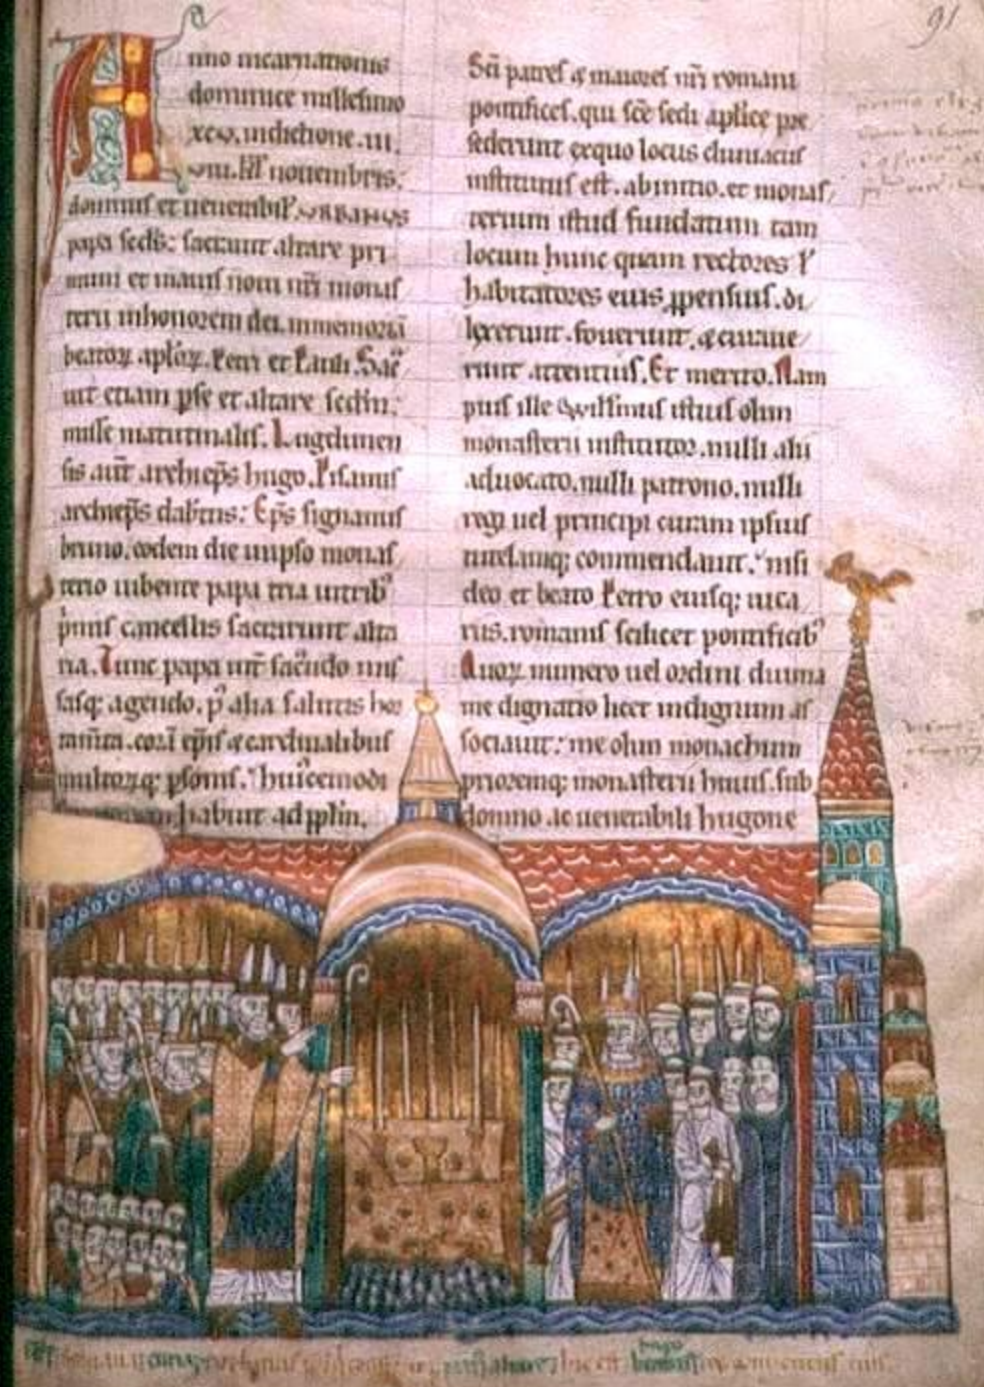 Anno incarnationis
dominice millesimo
xcv, indictione .iii.
viii. kl' nouembris.
domnus et uenerabil'. URBANUS
papa scd̅s: sacrauit altare pri
mum et maius noui nr̅i monas
terii inhonorem dei. inmemoria̅
beatoꝝ aploꝝ. Petri et Pauli. Sac̅
uit etiam ipse et altare scd̅m.
misse matutinalis. Lugdunen
sis aut̅ archiep̅s hugo. Pisanus
archiep̅s dabtus: Ep̅s signanus
bruno. eodem die inipso monas
terio iubente papa tria intrib'
primis cancellis sacrarunt alta
ria. Tunc papa int̅ sac̅ndo mis
sasq; agendo. p' alia salutis hor
tam̅ta. cora̅ ep̅is & cardinalibus
multorq; p̅sonis. huic̅emodi
habuit ad pp̅lm.
Sc̅i patres & maiores nr̅i romani
pontifices. qui sc̅e sedi aplice pre
sederunt ęequo locus diuinitus
institutus est. abinitio. et monas
terium istud fundatum tam
locum hunc quam rectores t'
habitatores eius ꝓpensius. di
lexerunt. fouerunt. & curaue
runt attentius. Et merito. Nam
pius ille Gwillmus istius olim
monasterii institutor. nulli alii
aduocato. nulli patrono. nulli
regi uel principi curam ipsius
tutelamq; commendauit. nisi
deo et beato Petro eiusq; uica
riis. romanis scilicet pontificib'
Quoꝝ numero uel ordini diuina
me dignatio licet indignum as
sociauit: me olim monachum
prioremq; monasterii huius. sub
domno ac uenerabili hugone
91
hugo